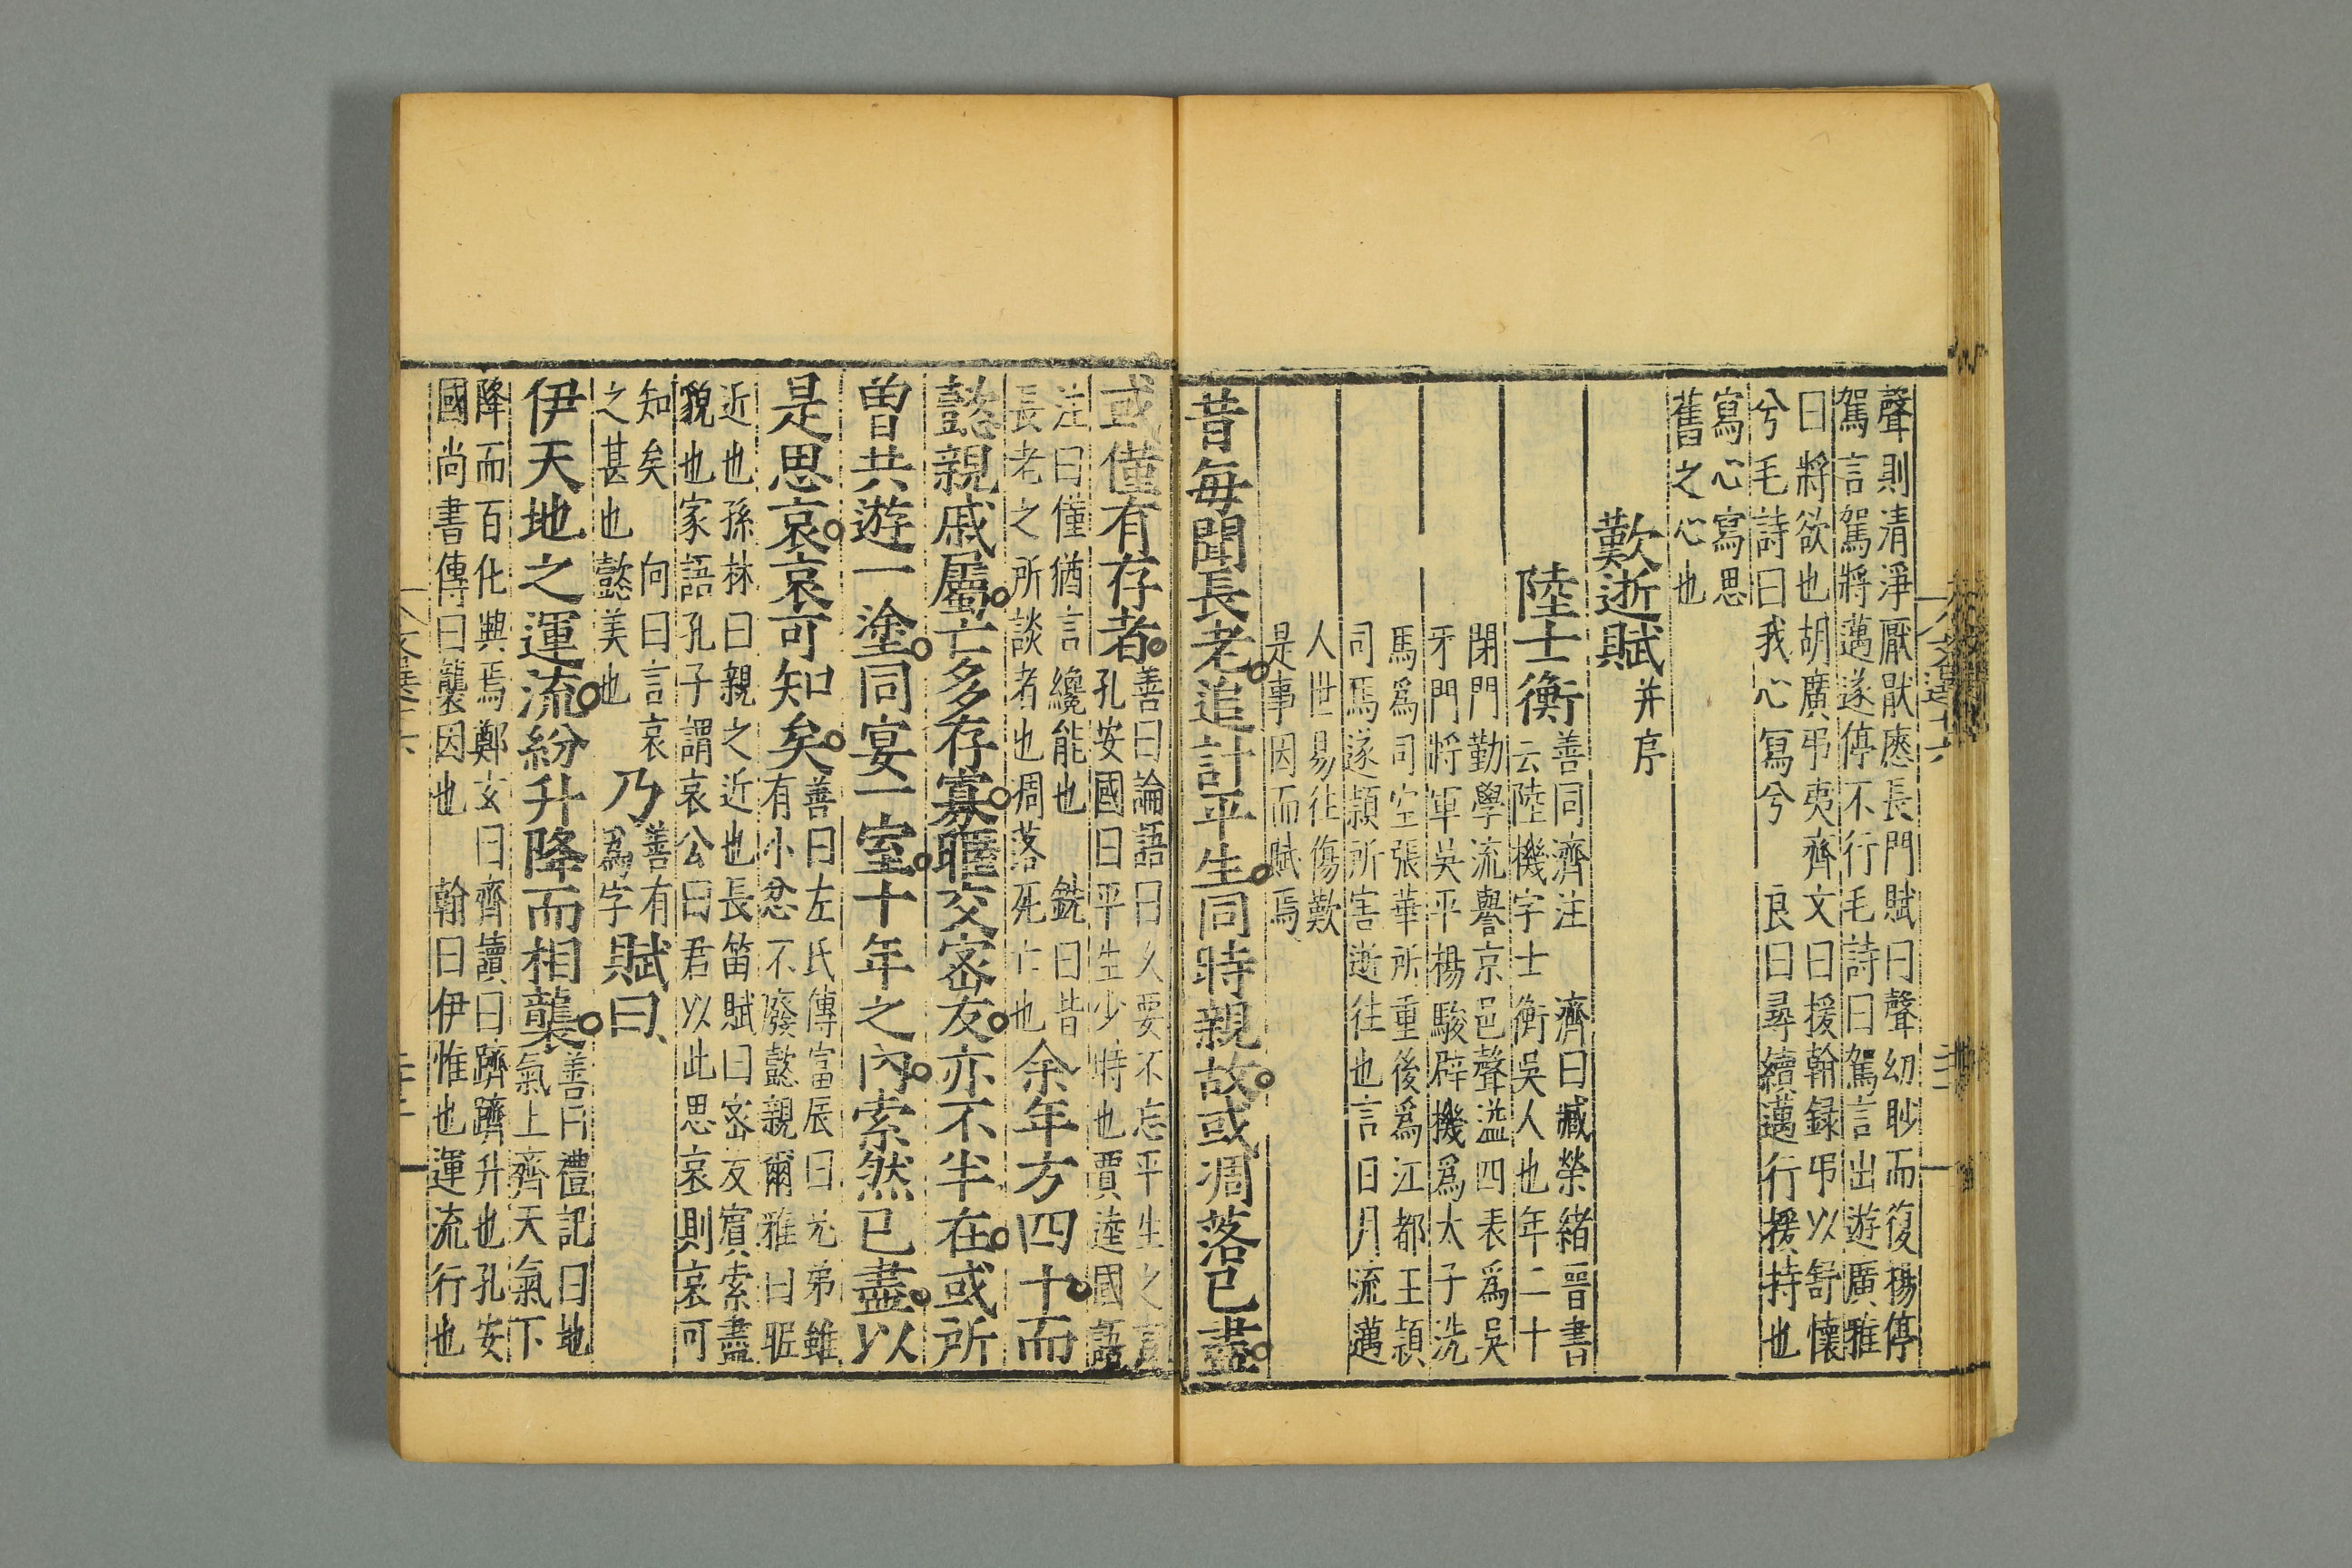 聲則清淨厭猒應長門賦曰聲幼眇而復揚停
駕言駕將邁遂停不行毛詩曰駕言出遊廣雅
曰將欲也胡廣弔夷齊文曰援翰録弔以舒懷
兮毛詩曰我心寫兮 良曰尋續邁行援持也
寫心寫思
舊之心也
歎逝賦并序
陸士衡善同濟注 濟曰臧榮緒晉書
云陸機字士衡吳人也年二十
閉門勤學流譽京邑聲溢四表爲吳
牙門將軍吳平楊駿辟機爲太子洗
馬爲司空張華所重後爲江都王穎
司馬遂穎所害逝往也言日月流邁
人世易往傷歎
是事因而賦焉
昔每聞長老追計平生同時親故或凋落已盡
或僅有存者善曰論語曰久要不忘平生之言
孔安國曰平生少時也賈逵國語
注曰僅猶言纔能也 銑曰昔
長老之所談者也凋落死亡也余年方四十而
懿親戚屬亡多存寡昵交密友亦不半在或所
曾共遊一塗同宴一室十年之內索然已盡以
是思哀哀可知矣善曰左氏傳富辰曰兄弟雖
有小忿不廢懿親爾雅曰昵
近也孫林曰親之近也長笛賦曰密友賓索盡
貌也家語孔子謂哀公曰君以此思哀則哀可
知矣 向曰言哀
之甚也懿美也乃善有
爲字賦曰
伊天地之運流紛升降而相襲善曰禮記曰地
氣上齊天氣下
降而百化興焉鄭玄曰齊讀曰躋躋升也孔安
國尚書傳曰襲因也 翰曰伊惟也運流行也